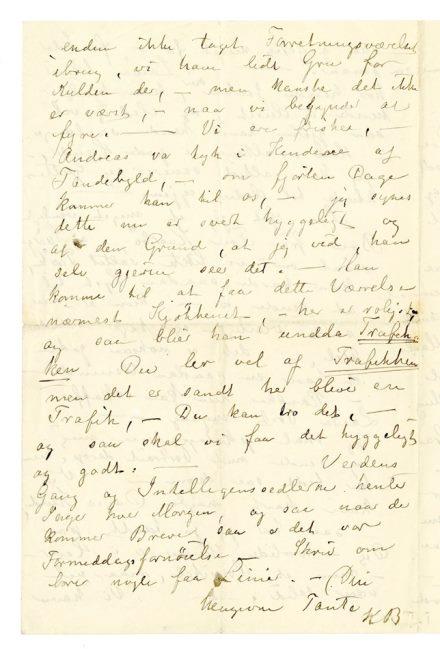 endnu ikke taget Forretningsværelset
ibrug, vi have lidt Gru for
Kulden der, – men kanske det ikke
er værst, – naar vi begynder at
fyre. — Vi ere friske, –
Andreas va syk i Hendene af
Tandebyld, – om fjorten Dage
kommer han til os, – jeg synes
dette nu er svert hyggeligt og
af den Grund, at jeg ved, han
selv gjerne seer det. – Han
komme til at faa dette Værrelse
nærmest Kjøkkenet, – her er roligst,
og saa bliver han undda Trafik-
ken Du ler vel af Trafikken
men det er sandt her blive en
Trafik, – Du kan tro det, –
og saa skal vi faa det hyggeligt
og godt. — Verdens
Gang og Intelligenssedlerne henter
Pige hver Morgen, og saa naar de
kommer Breve, saa er det vor
Formiddagsfornøielse – Skriv om
bare nogle faa Linier. – Din
hengivne Tante
KB